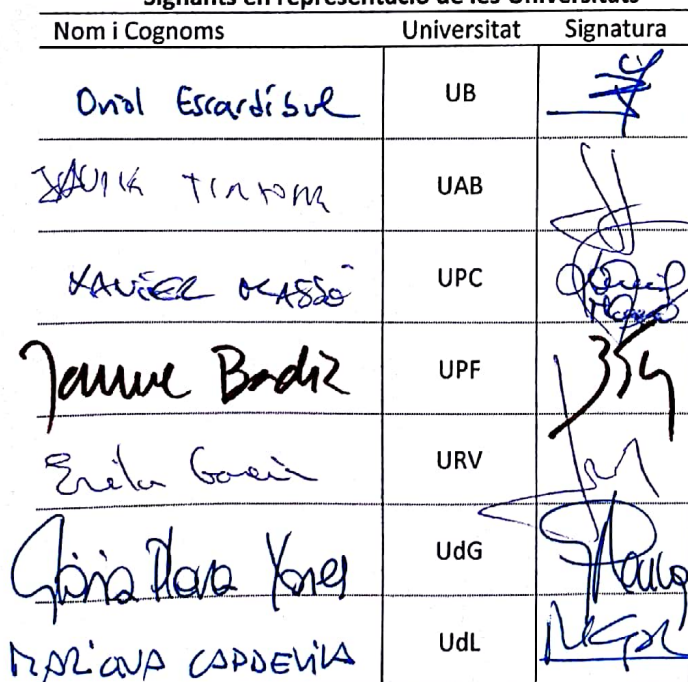 Signants en representació de les Universitats
Nom i Cognoms Universitat Signatura
Oriol Escardíbul UB
UAB
XAVIER MASSÓ UPC
Jaume Badia UPF
Erika García URV
Glòria Plana Yanes UdG
MARIONA CAPDEVILA UdL